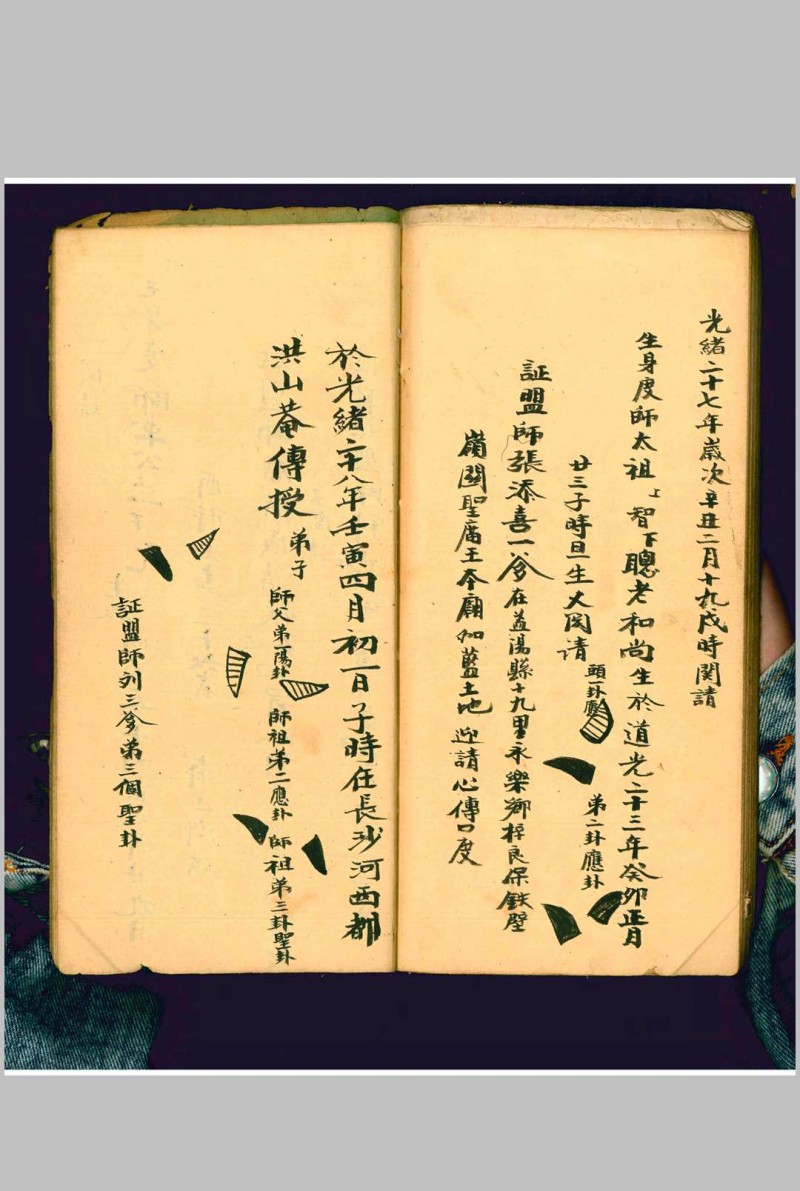 光緒二十七年歲次辛丑二月十九戌時関請
生身度師太祖上智下聰老和尚生於道光二十三年癸卯正月
廿三子時旦生大関請
頭一卦應
第二卦應卦
証盟師張添喜一爹在益陽縣十九里永樂鄉梓良保鉄壁
嶺関聖腐王本廟加藍土地迎請心傳口度
於光緒二十八年壬寅四月初一日子時在長沙河西都
洪山菴傳授弟子
師父第一陽卦
師祖第二應卦
師祖第三卦聖卦
証盟師列三爹第三個聖卦